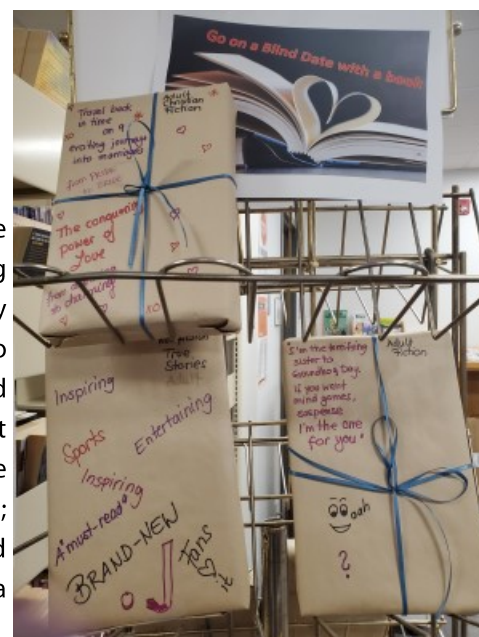 Go on a Blind Date with a book
Travel back
in time
on a
exciting journey
into marriage
Adult
Christian
Fiction
from
The conquering
power of
Love
from
to charming
XO
True
Stories
Inspiring
Entertaining
Sports
Inspiring
A "must-read"
BRAND-NEW
Fans
it
"I'm the terrifying
sister to
Groundhog Day.
if you want
mind games,
suspense
I'm the one
for you"
Adult
Fiction
oah
?